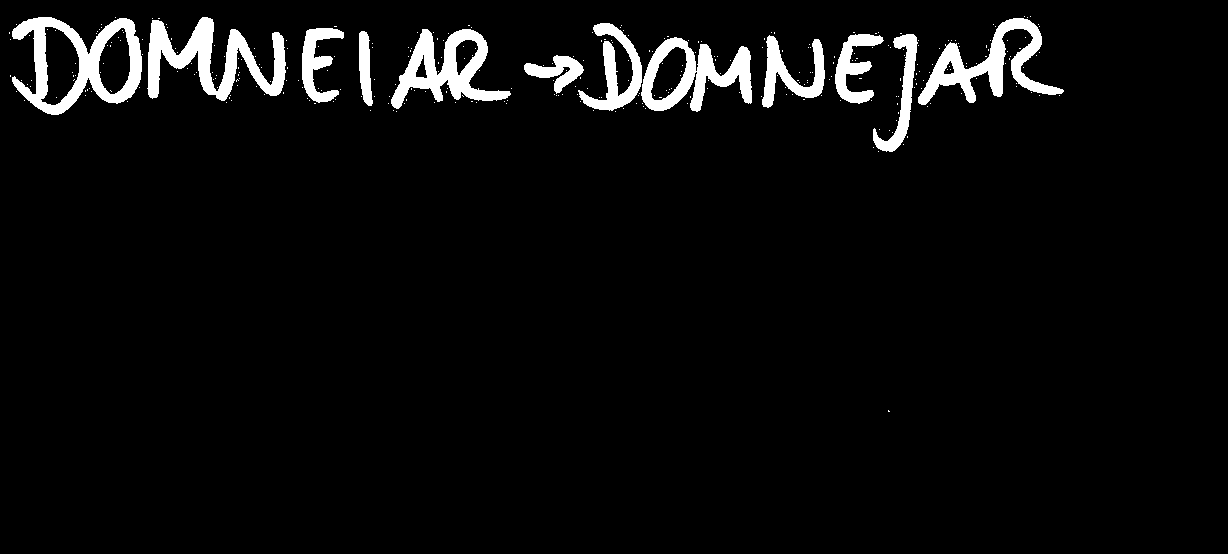 DOMNEIAR → DOMNEJAR